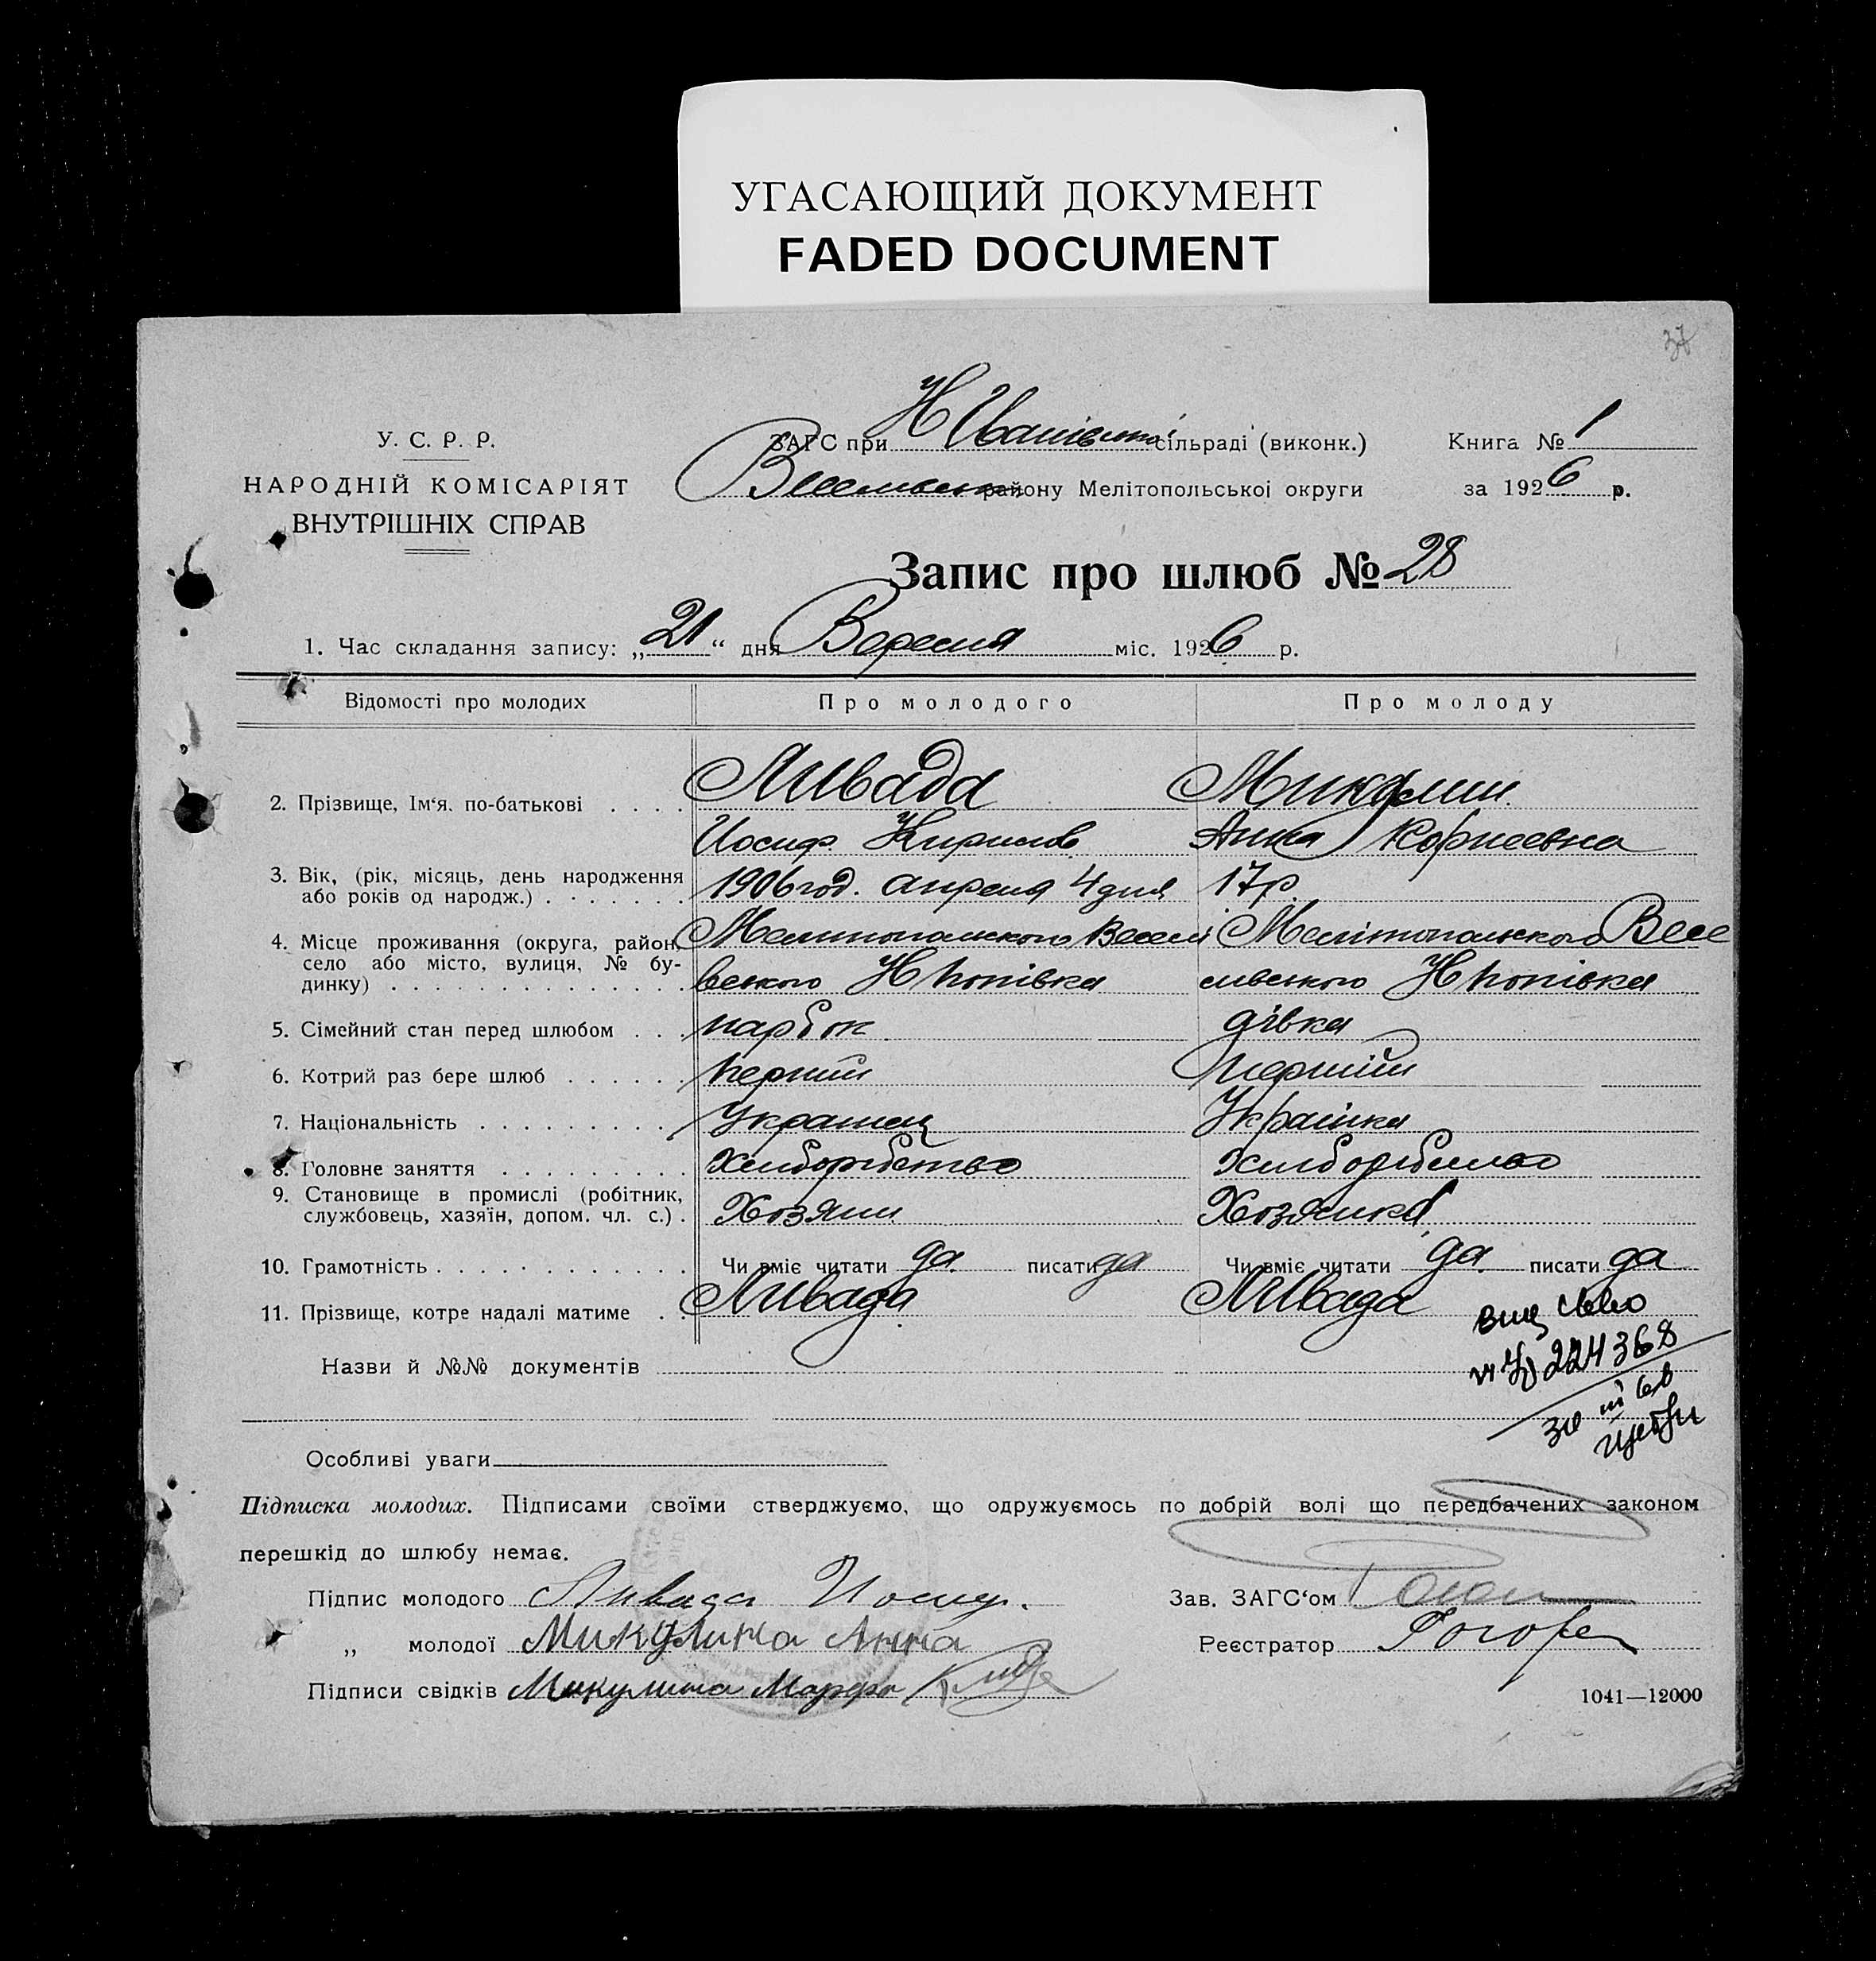 УГАСАЮЩИЙ ДОКУМЕНТ
FADED DOCUMENT
37
У. С. Р. Р.
НАРОДНІЙ КОМІСАРІЯТ
ВНУТРІШНІХ СПРАВ
ЗАГС при Н Иванівській сільраді (виконк.)
Книга № 1
Веселівськ району Мелітопольської округи
за 1926 р.
Запис про шлюб № 28
1. Час складання запису: „21“ дня Вересня міс. 1926 р.
Відомості про молодих
Про молодого
Про молоду
2. Прізвище, Ім‘я, по-батькові . . . .
Ливада
Иосиф Кирилов
Микулин
Анна Корнеевна
3. Вік, (рік, місяць, день народження
або років од народж.) . . . . . . .
1906 год. апреля 4 дня
17 р.
4. Місце проживання (округа, район,
село або місто, вулиця, № бу-
динку) . . . . . . . . . . . . . .
Мелитопольского Веселі
вского Н Попівка
Мелітопольского Весе
лівського Н Попівка
5. Сімейний стан перед шлюбом . . .
парбок
дівка
6. Котрий раз бере шлюб . . . . .
перший
перший
7. Національність . . . . . . . . .
Украинец
Украінка
8. Головне заняття . . . . . . . . .
Хлиборобство
Хлиборобство
9. Становище в промислі (робітник,
службовець, хазяїн, допом. чл. с.) .
Хозяин
Хозяйка
10. Грамотність . . . . . . . . . . . .
Чи вміє читати да писати да
Чи вміє читати да писати да
11. Прізвище, котре надалі матиме . .
Ливада
Ливада
Назви й №№ документів
224368
Особливі уваги
Підписка молодих. Підписами своїми стверджуємо, що одружуємось по добрій волі що передбачених законом
перешкід до шлюбу немає.
Підпис молодого Ливада Иосиф.
Зав. ЗАГС‘ом
„ молодої Микулина Анна
Реєстратор
Підписи свідків Микулина Марфа
1041—12000